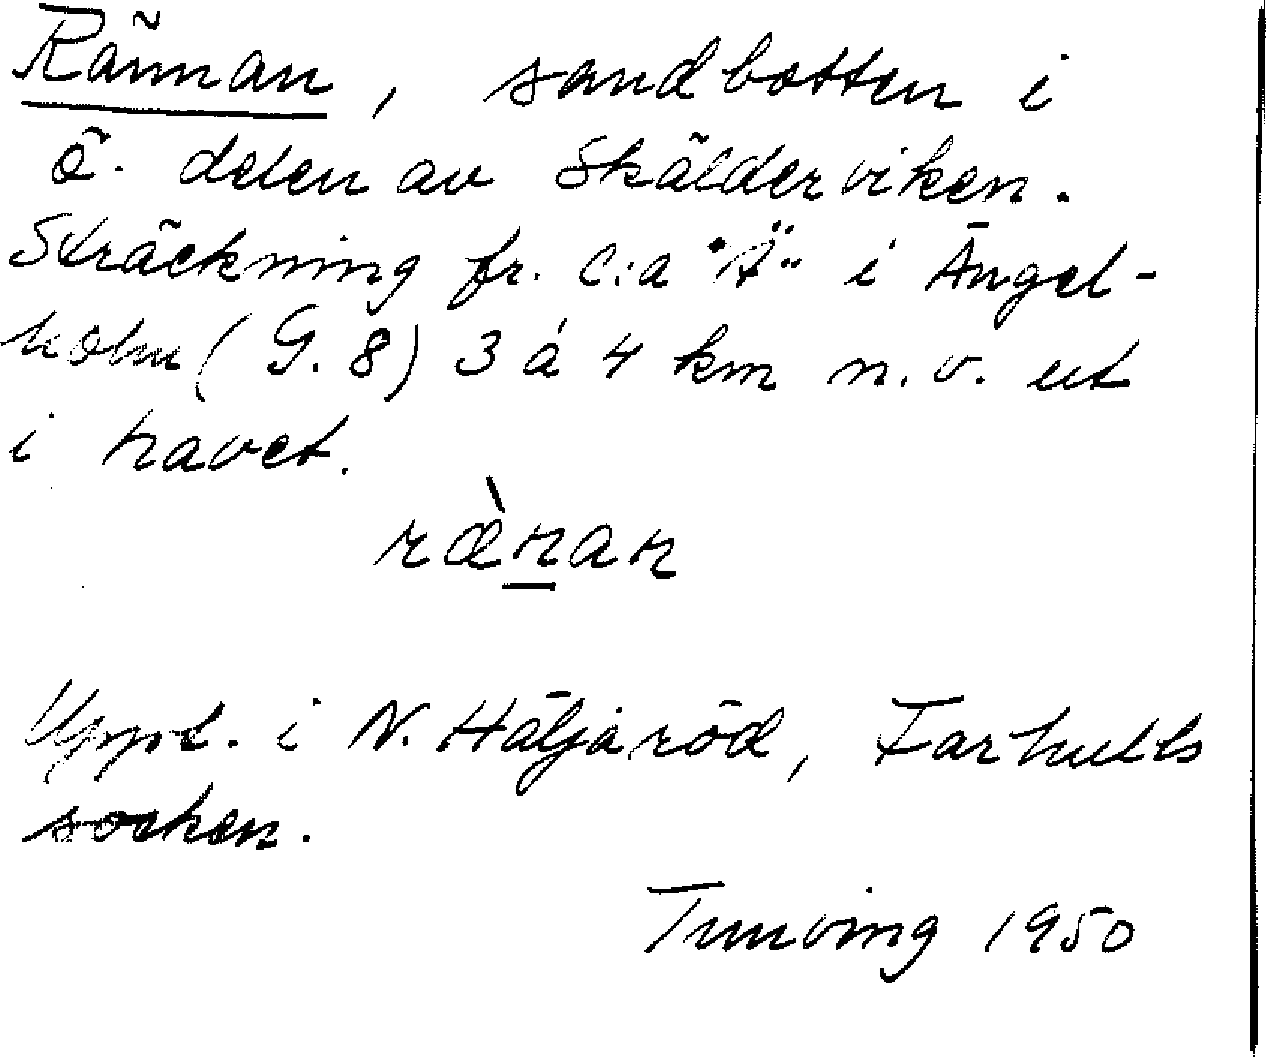 Rännan, sandbotten i
ö. delen av Skälderviken.
Sträckning fr. c:a "Ä" i Ängel-
holm (G. 8) 3 á 4 km n.v. ut
i havet.
ræ̀nan
Uppt. i N. Häljaröd, Farhults
socken.
Tunving 1950